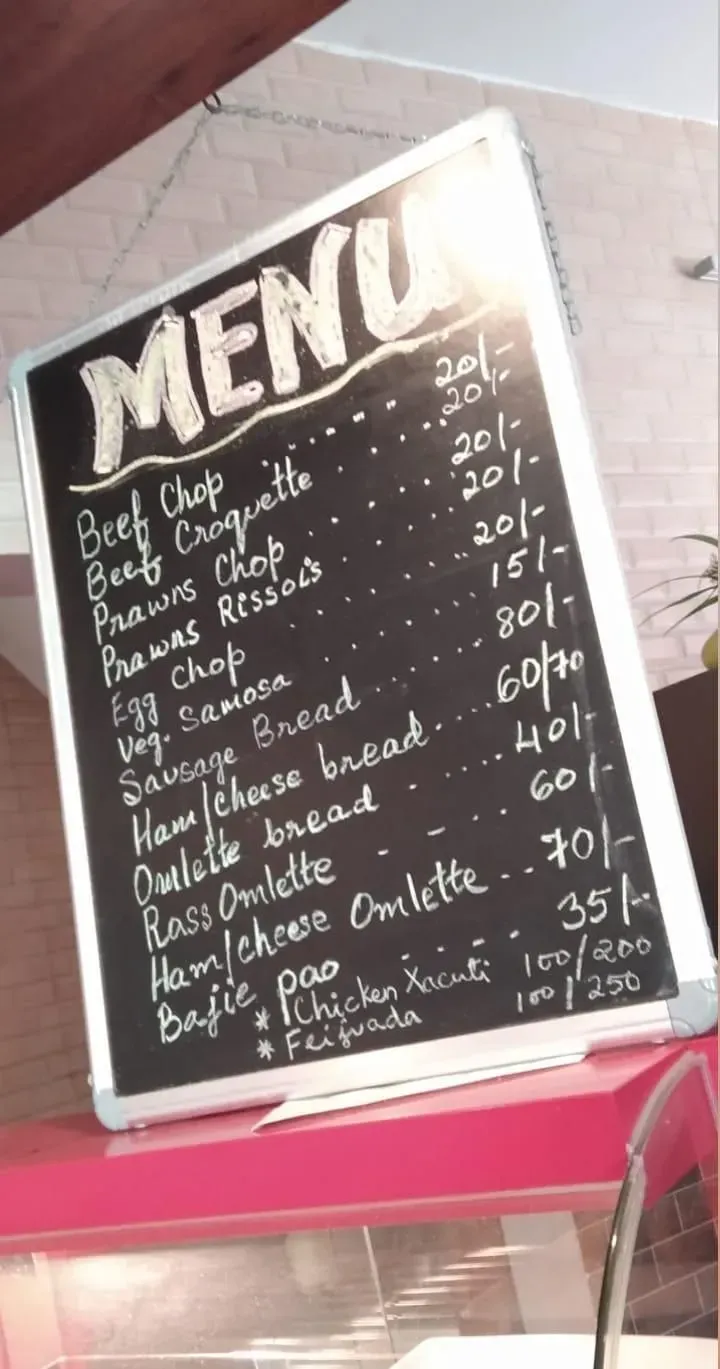 MENU
Beef Chop ....... 20/-
Beef Croquette .... 20/-
Prawns Chop ...... 20/-
Prawns Rissois ..... 20/-
Egg Chop ........ 20/-
Veg. Samosa ...... 15/-
Sausage Bread ...... 80/-
Ham/cheese bread .... 60/70
Omlette bread ...... 40/-
Rass Omlette - - .. 60/-
Ham/cheese Omlette .. 70/-
Bajie pao .... 35/-
* Chicken Xacuti 100/200
* Feijuada 100/250